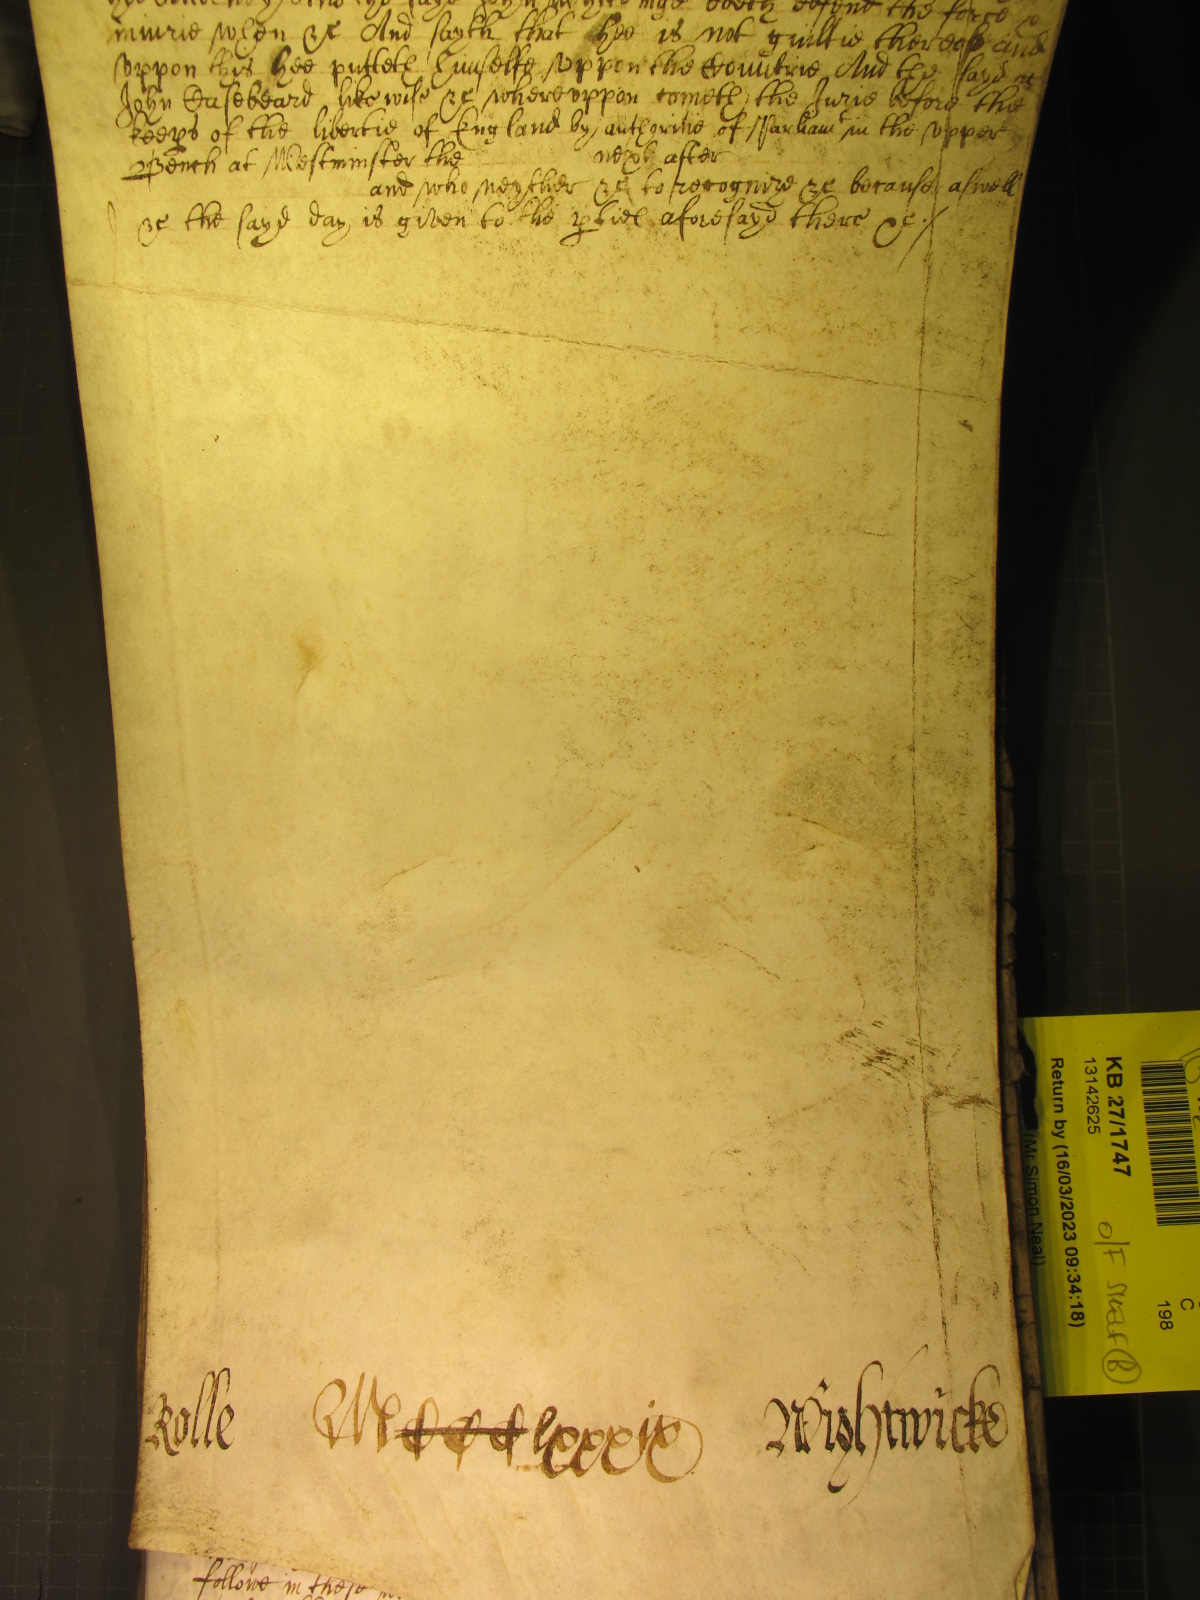 the sayd John doeth defend the force &
iniurie when &c And sayth that hee is not guiltie thereof And
vppon this hee putteth himselfe vppon the Countrie And the sayd
John Casebeard likewise &c wherevppon cometh the Jurie before the
keeps of the libertie of England by authoritie of Parliamt in the vpper
Bench at Westminster the next after
and who neyther &c to recognize &c because aswell
&c the sayd day is given to the pties aforesayd there &c
Rolle M CCC lxxxix Wightwicke
followe in these
KB 27/1747
13142625
Return by (16/03/2023 09:34:18)
(Mr Simon Neal)
C
198